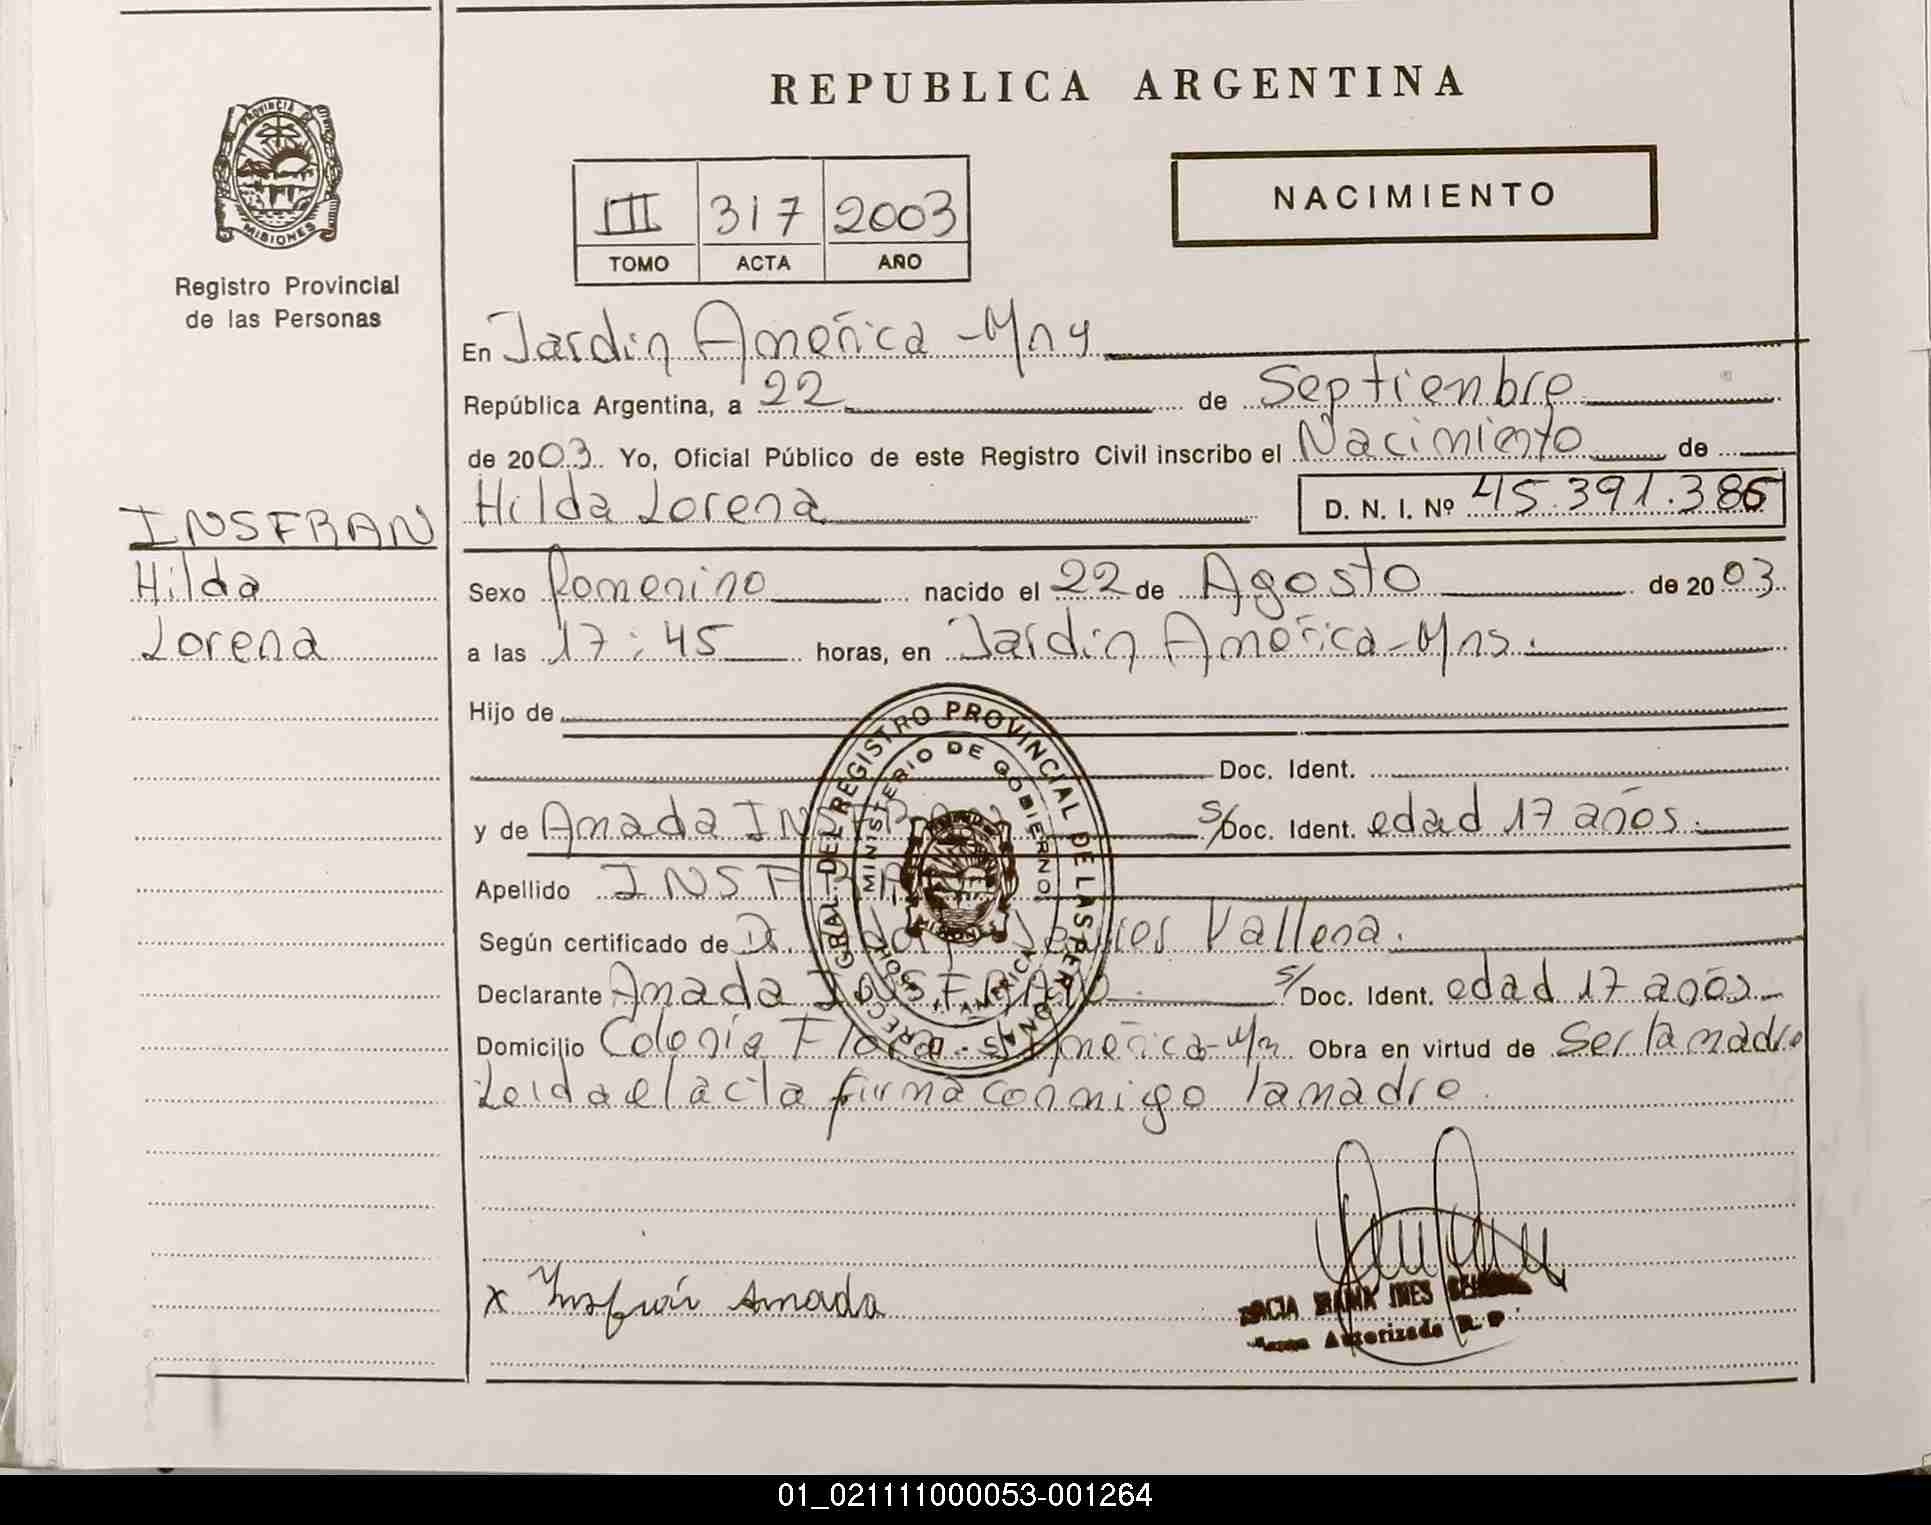 REPUBLICA ARGENTINA
PROVINCIA DE
MISIONES
Registro Provincial
de las Personas
NACIMIENTO
III 317 2003
TOMO ACTA AÑO
En Jardin América - Mns
República Argentina, a 22 de Septiembre
de 2003. Yo, Oficial Público de este Registro Civil inscribo el Nacimiento de
Hilda Lorena D. N. I. Nº 45.391.386
INSFRAN
Hilda
Lorena
Sexo femenino nacido el 22 de Agosto de 2003.
a las 17:45 horas, en Jardin América - Mns.
Hijo de
Doc. Ident.
y de Amada INSFRAN s/Doc. Ident. edad 17 años.
Apellido INSFRAN
Según certificado de Dr. Vallena.
Declarante Amada INSFRAN s/Doc. Ident. edad 17 años
Domicilio Colonia Flora - América - Mn Obra en virtud de Ser la madre
Leida el acta firma conmigo la madre.
DIREC. GRAL. DEL REGISTRO PROVINCIAL DE LAS PERSONAS
MINISTERIO DE GOBIERNO
AMERICA
MISIONES
x Insfrán Amada
INES
Autorizada R. P.
01_021111000053-001264